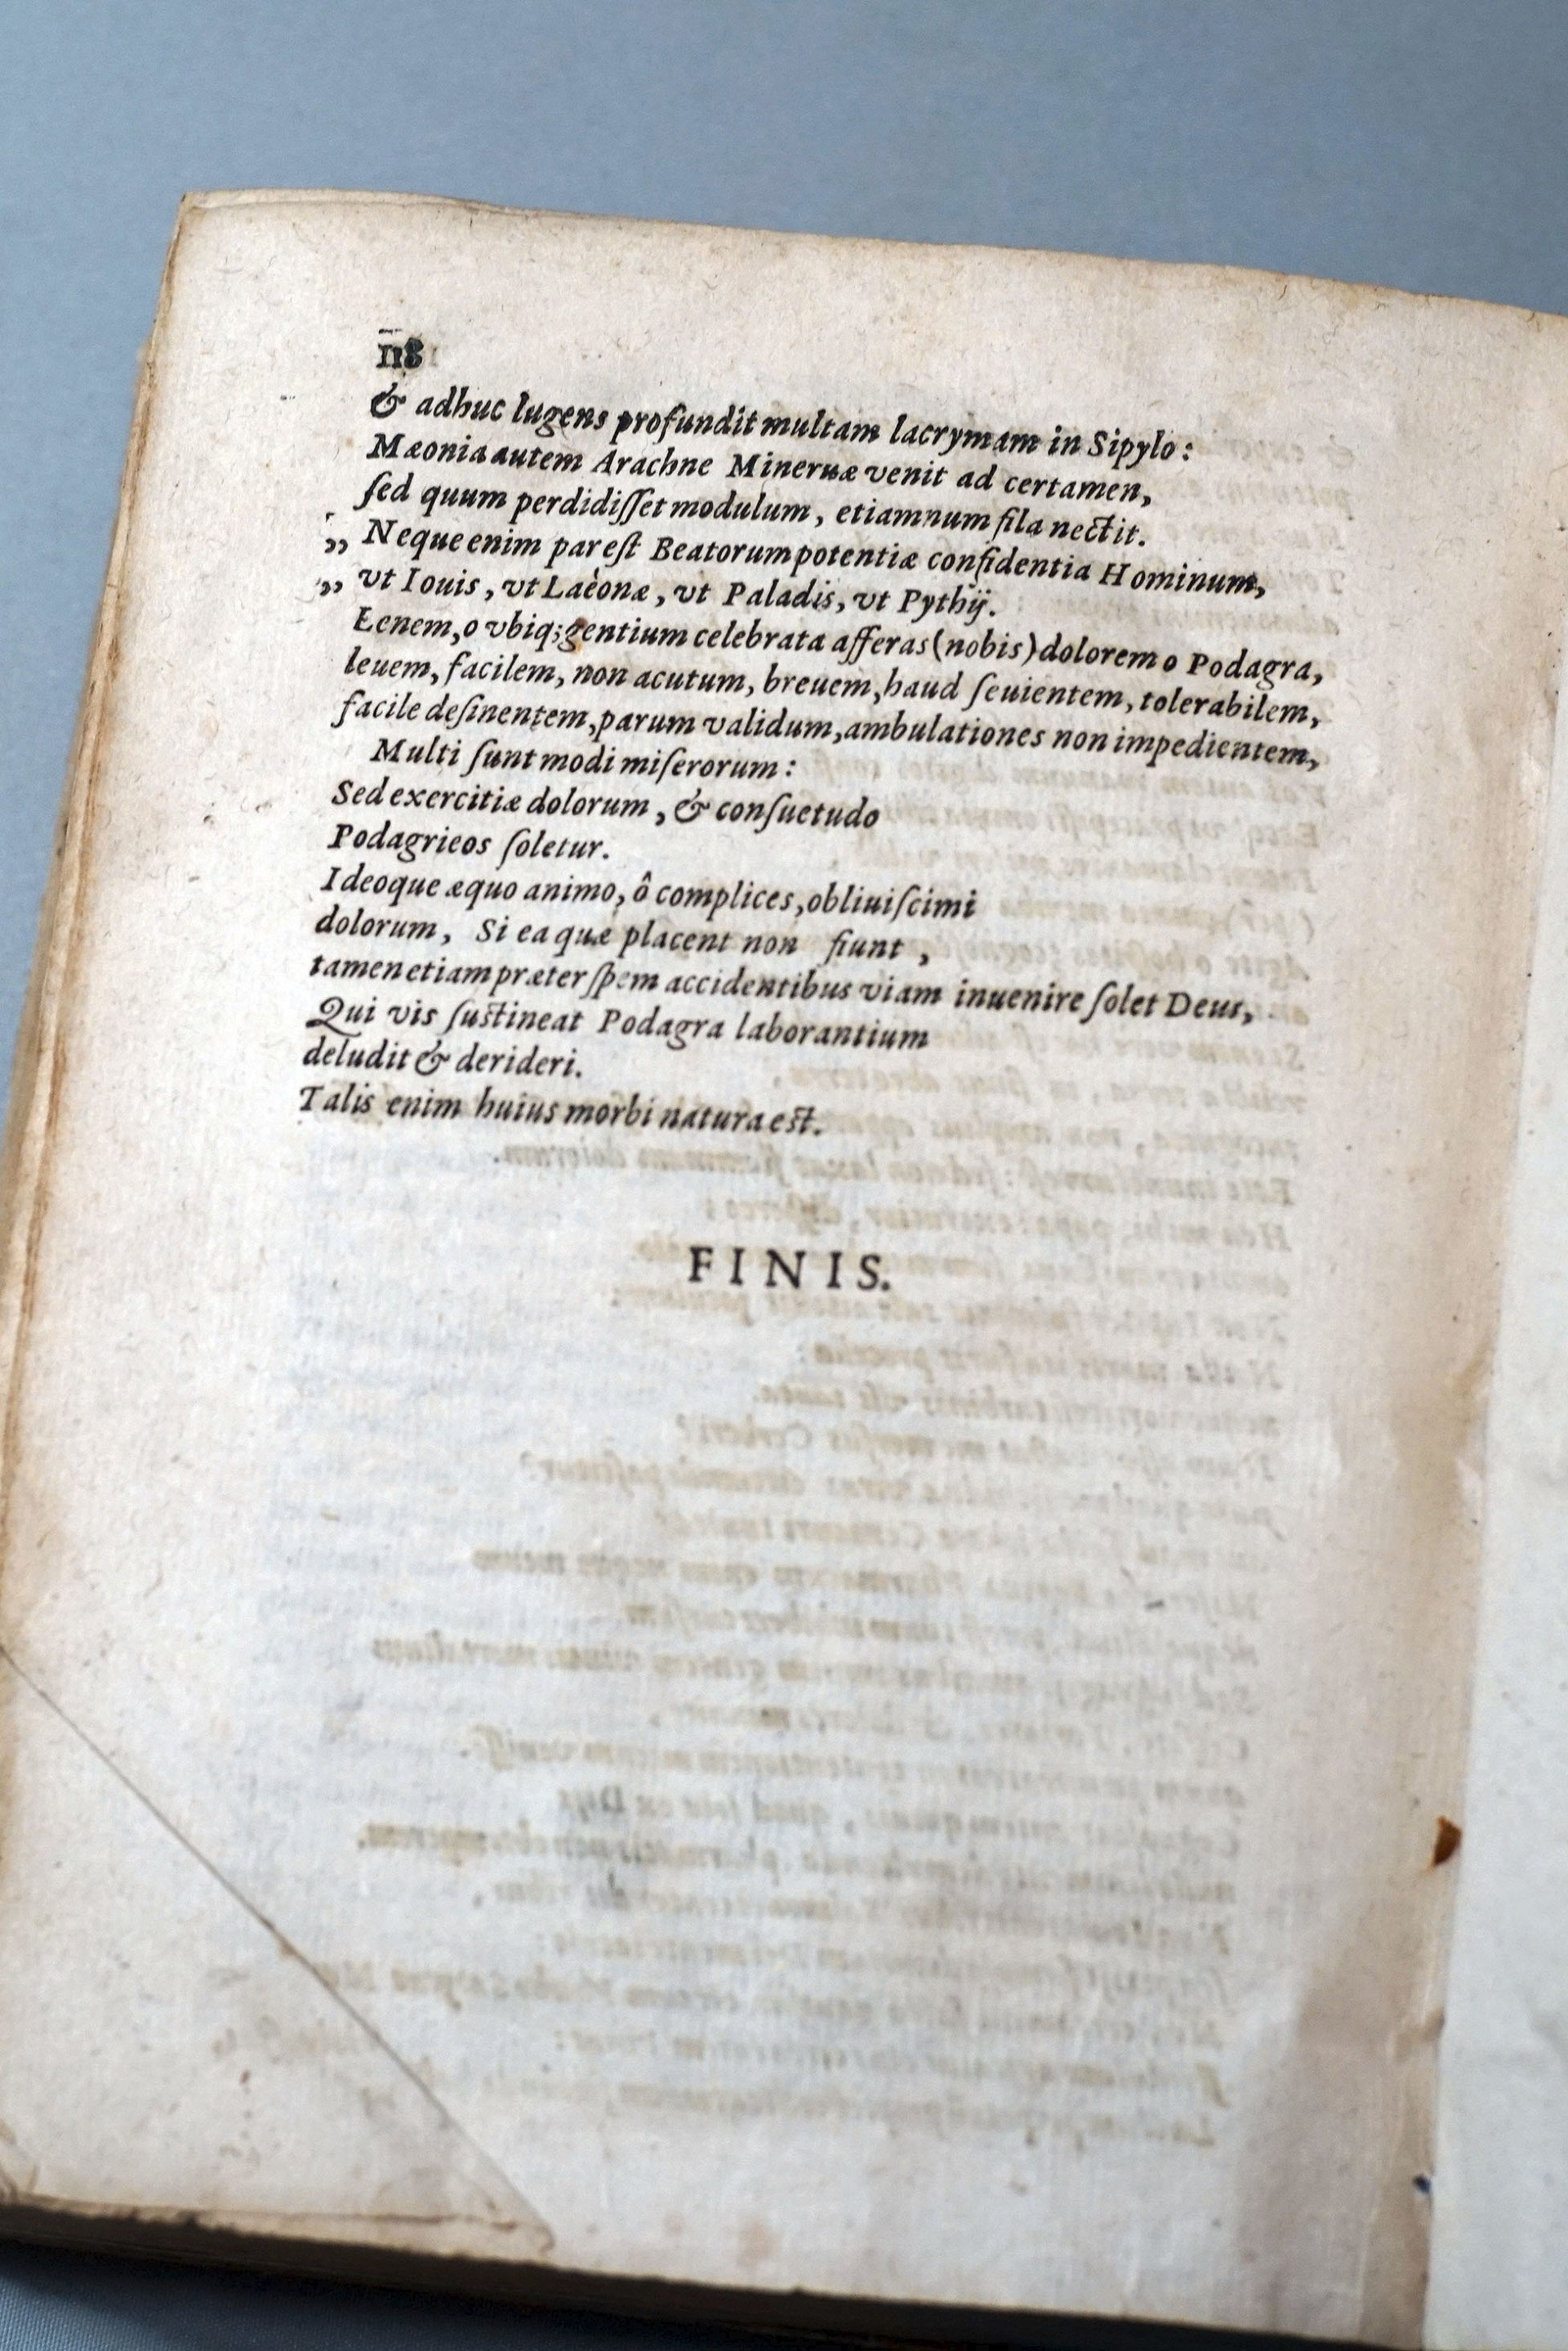 118
& adhuc lugens profundit multam lacrymam in Sipylo:
Mæonia autem Arachne Mineruæ venit ad certamen,
ſed quum perdidiſſet modulum, etiamnum fila nectit.
„ Neque enim par eſt Beatorum potentiæ confidentia Hominum,
„ vt Iouis, vt Laèonæ, vt Paladis, vt Pythij.
Lenem, o vbiq; gentium celebrata afferas (nobis) dolorem o Podagra,
leuem, facilem, non acutum, breuem, haud ſeuientem, tolerabilem,
facile deſinentem, parum validum, ambulationes non impedientem,
Multi ſunt modi miſerorum:
Sed exercitiæ dolorum, & conſuetudo
Podagrieos ſoletur.
Ideoque æquo animo, ô complices, obliuiſcimi
dolorum, Si ea quæ placent non fiunt,
tamen etiam præter ſpem accidentibus viam inuenire ſolet Deus,
Qui vis ſuſtineat Podagra laborantium
deludit & derideri.
Talis enim huius morbi natura eſt.
FINIS.